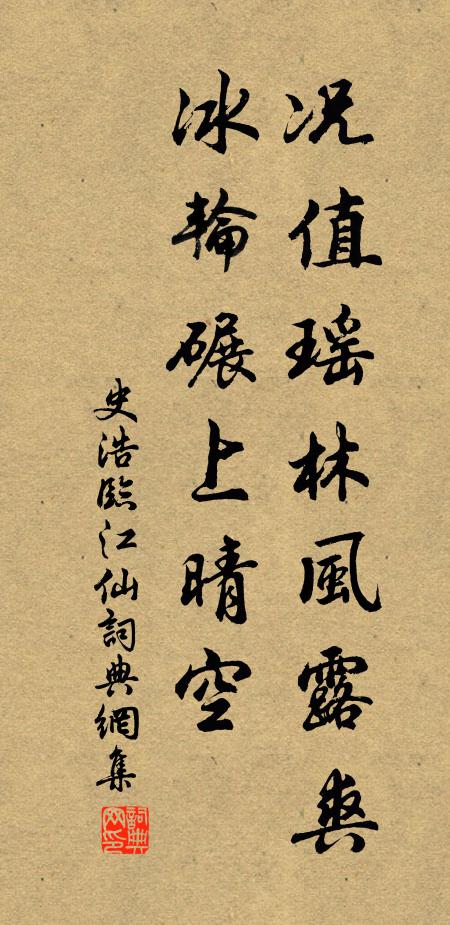 况值瑶林風露爽
冰輪碾上晴空
史浩臨江仙詞典網集
詞典网印